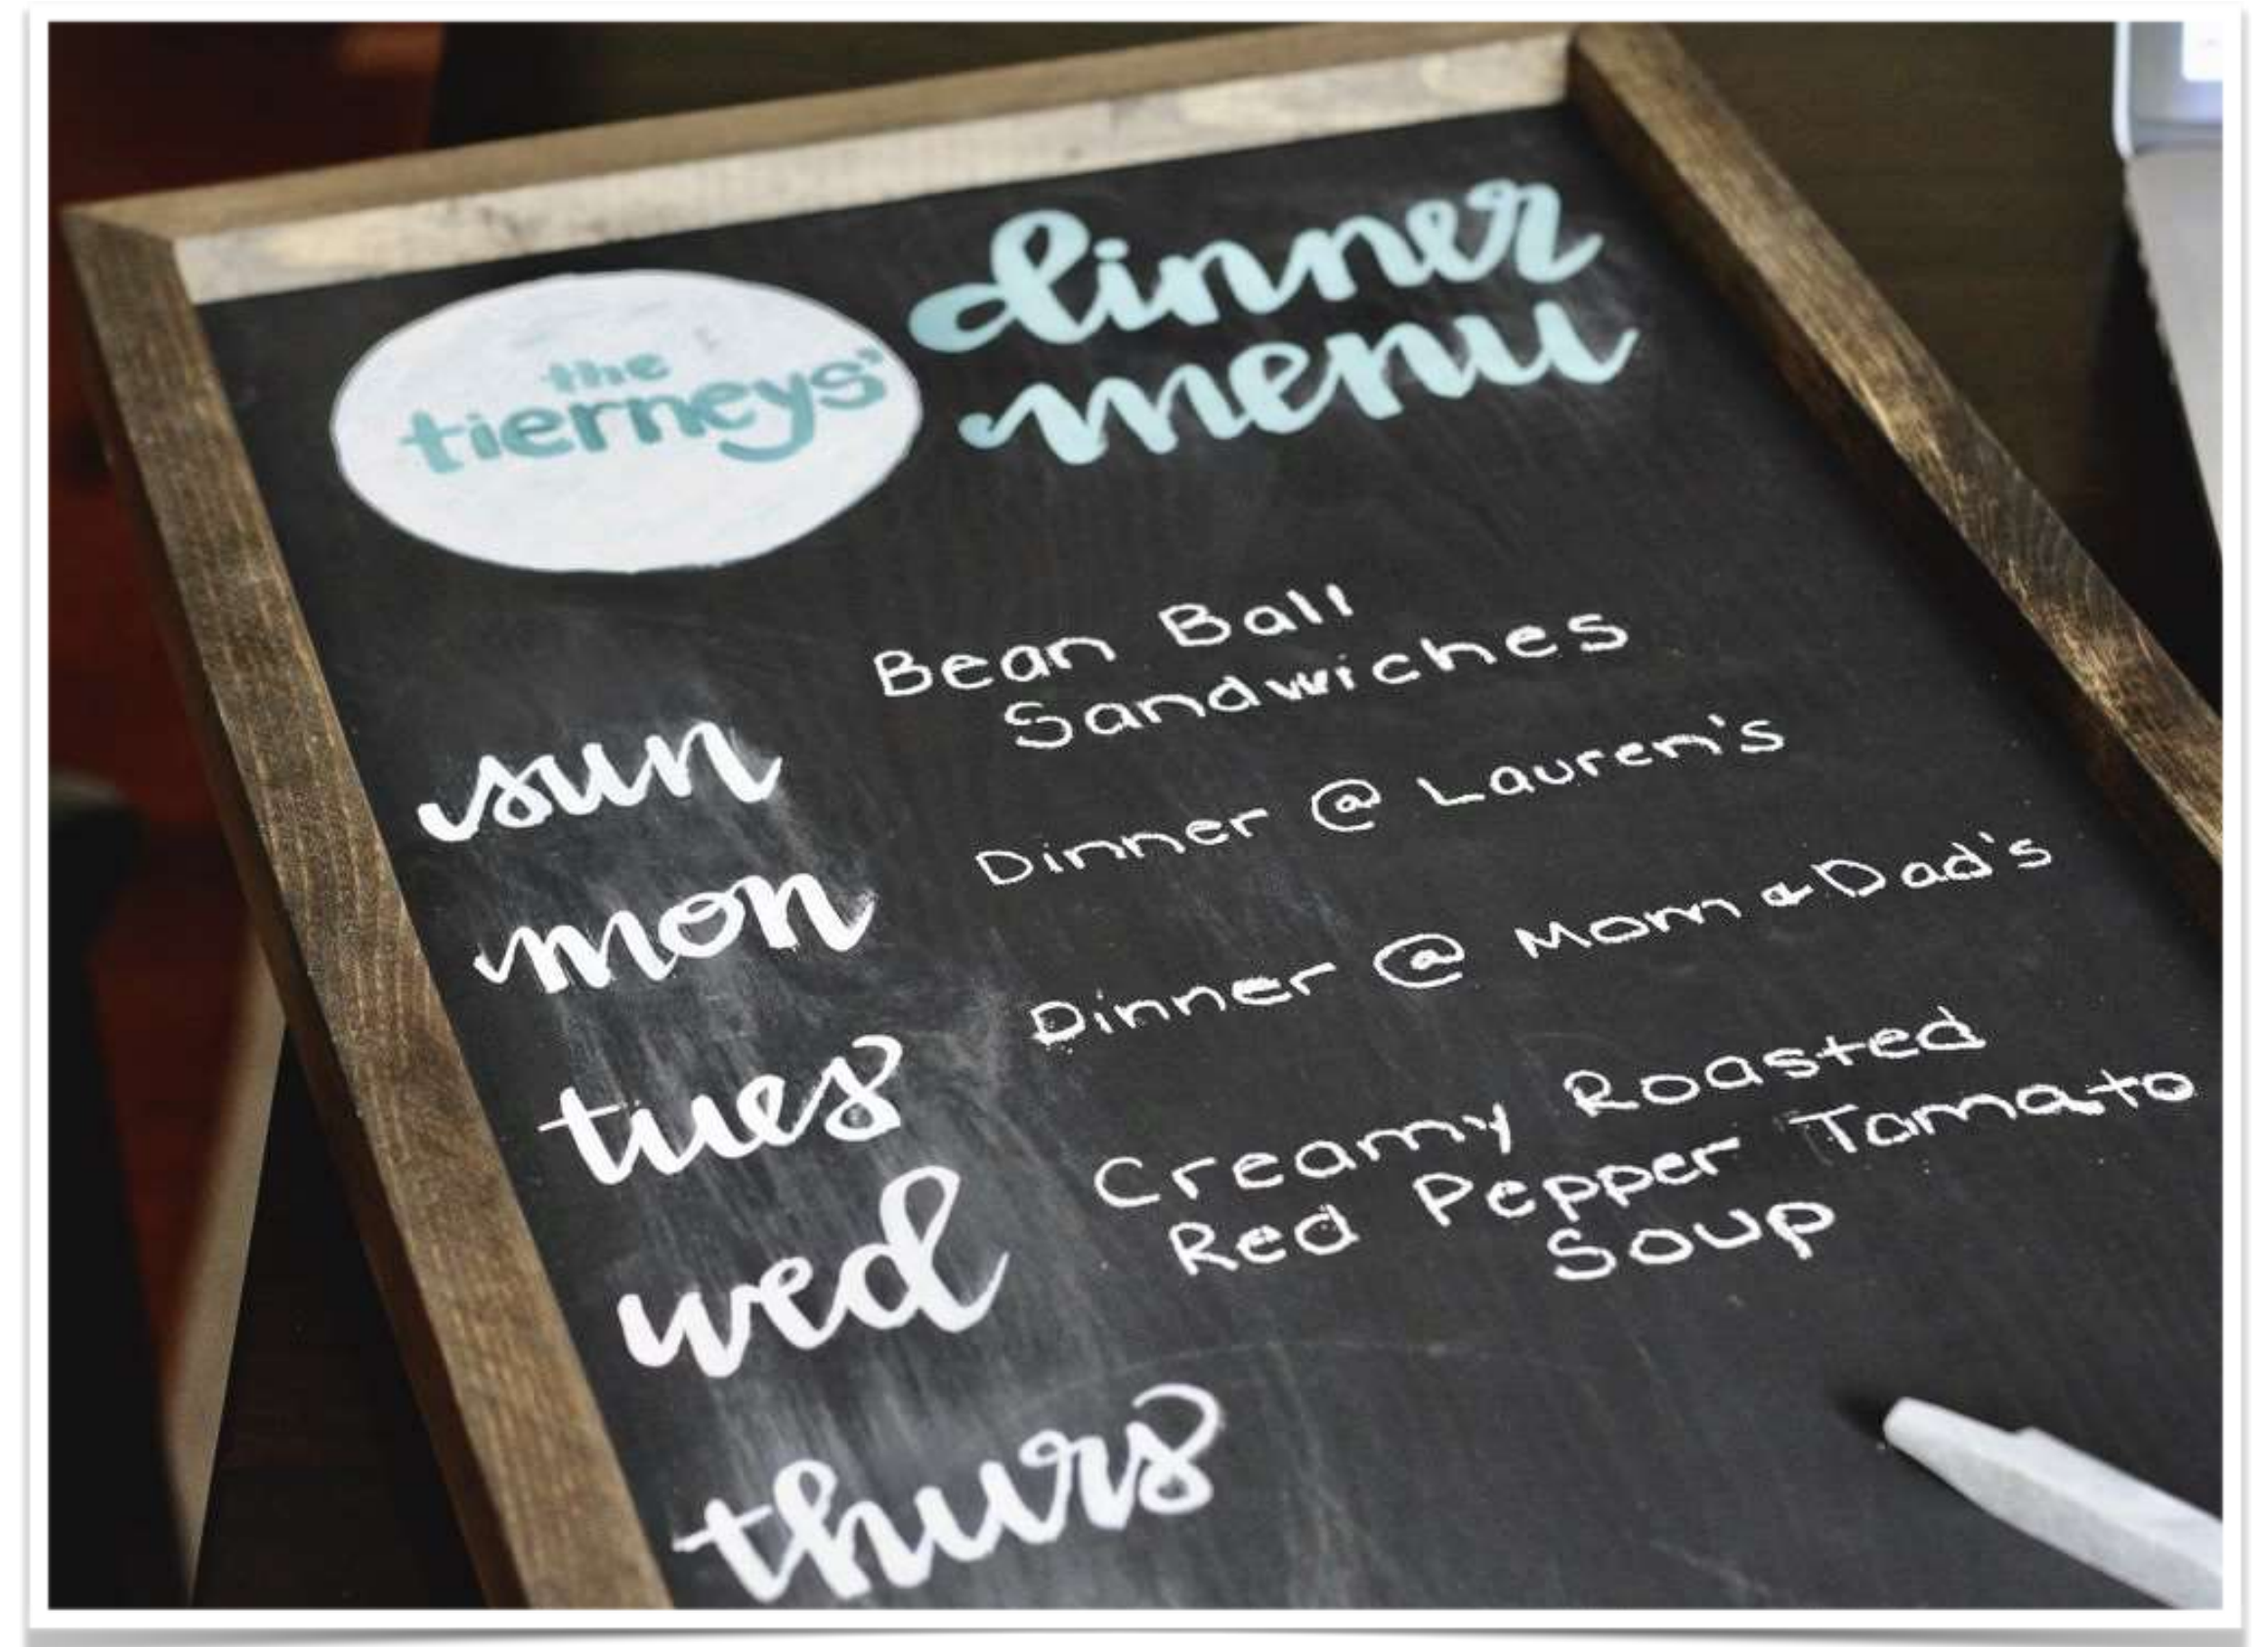 the
tierneys'
dinner
menu
Bean Ball
Sandwiches
sun
Dinner @ Lauren's
mon
Dinner @ Mom & Dad's
tues
Creamy Roasted
Red Pepper Tomato
Soup
wed
thurs